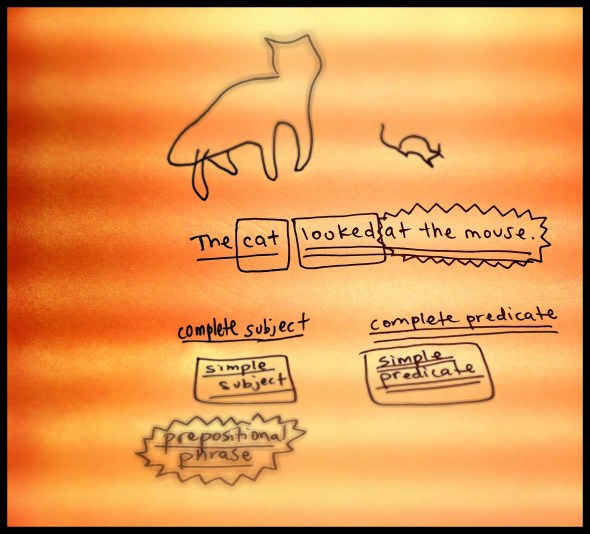 The cat looked at the mouse.
complete subject complete predicate
simple subject
simple predicate
prepositional phrase